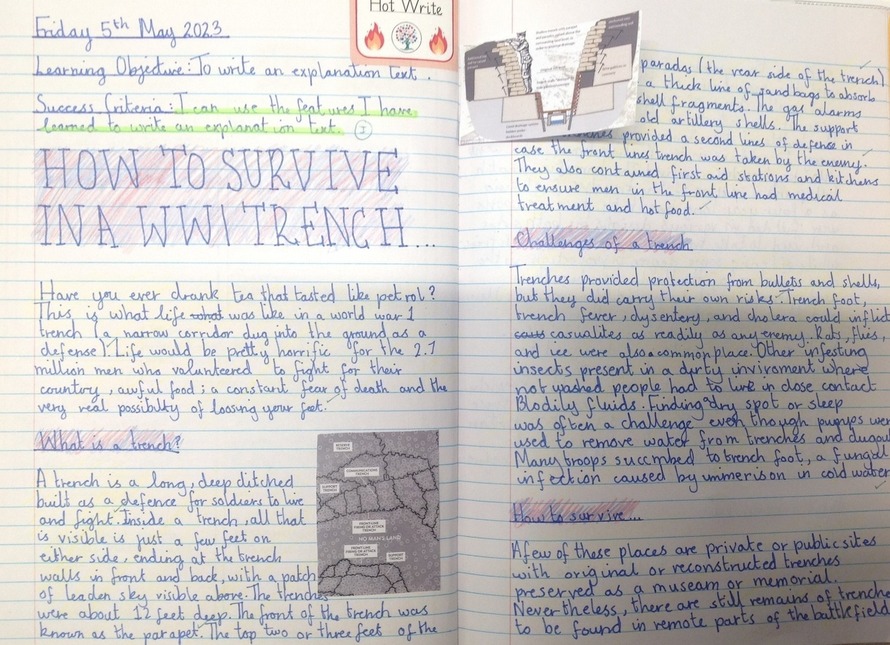 Hot Write
Friday 5th May 2023
Learning Objective: To write an explanation text.
Success Criteria: I can use the features I have
learned to write an explanation text. I
HOW TO SURVIVE
IN A WWI TRENCH...
Have you ever drank tea that tasted like petrol?
This is what life what was like in a world war 1
trench (a narrow corridor dug into the ground as a
defense). Life would be pretty horrific for the 2.7
million men who volunteered to fight for their
country, awful food; a constant fear of death and the
very real possibilty of loosing your feet.
What is a trench?
A trench is a long, deep ditched
built as a defence for soldiers to live
and fight. Inside a trench, all that
is visible is just a few feet on
either side, ending at the trench
walls in front and back, with a patch
of leaden sky visible above. The trenches
were about 12 feet deep. The front of the trench was
known as the parapet. The top two or three feet of the
RESERVE
TRENCH
COMMUNICATIONS
TRENCH
SUPPORT
TRENCH
FRONT-LINE
FIRING OR ATTACK
TRENCH
NO MAN'S LAND
FRONT-LINE
FIRING OR ATTACK
TRENCH
SUPPORT
TRENCH
parados (the rear side of the trench)
a thick line of sandbags to absorb
shell fragments. The gas alarms
old artillery shells. The support
provided a second lines of defense in
case the front lines trench was taken by the enemy.
They also contained first aid stations and kitchens
to ensure men in the front line had medical
treatment and hot food.
Challenges of a trench
Trenches provided protection from bullets and shells,
but they did carry their own risks. Trench foot,
trench fever, dysentery, and cholera could inflict
casualites as readily as any enemy. Rats, flies,
and ice were also a common place. Other infesting
insects present in a dyrty inviroment where
not washed people had to live in close contact
Blodily fluids. Finding dry spot or sleep
was often a challenge even though pumps wer
used to remove water from trenches and dugou
Many troops succmbed to trench foot, a fungal
infection caused by immerison in cold water
How to survive...
A few of these places are private or public sites
with original or reconstructed trenches
preserved as a museam or memorial.
Nevertheless, there are still remains of trenche
to be found in remote parts of the battlefield